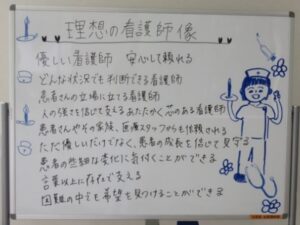 理想の看護師像
優しい看護師 安心して頼れる
どんな状況でも判断できる看護師
患者さんの立場に立てる看護師
人の強さを信じて支えるあたたかく芯のある看護師
患者さんやその家族、医療スタッフからも信頼される
ただ優しいだけでなく、患者の成長を信じて見守る
患者の些細な変化に気付くことができる
言葉以上に存在で支える
困難の中でも希望を見つけることができる